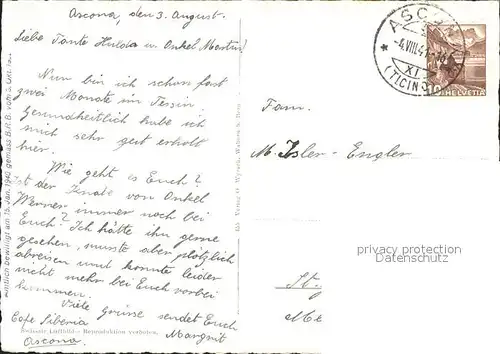 Ascona, den 3. August.
Liebe Tante Hulda u. Onkel Martin!
Nun bin ich schon fast
zwei Monate im Tessin.
Gesundheitlich habe ich
mich sehr gut erholt
hier.
Wie geht es Euch?
Ist der Knabe von Onkel
Werner immer noch bei
Euch? Ich hätte ihn gerne
gesehen, musste aber plötzlich
abreisen und konnte leider
nicht mehr bei Euch vorbei
kommen.
Viele Grüsse sendet Euch
Margrit
Cafe Siberia
Ascona
Luftbild - Reproduktion verboten.
Amtlich bewilligt am 15. Jan. 1940 gemäss B.R.B. vom 3. Okt.
Verlag
ASC
-4.VIII.4
XI
(TICINO)
HELVETIA
Fam.
M. Isler-Engler
privacy protection
Datenschutz
St.